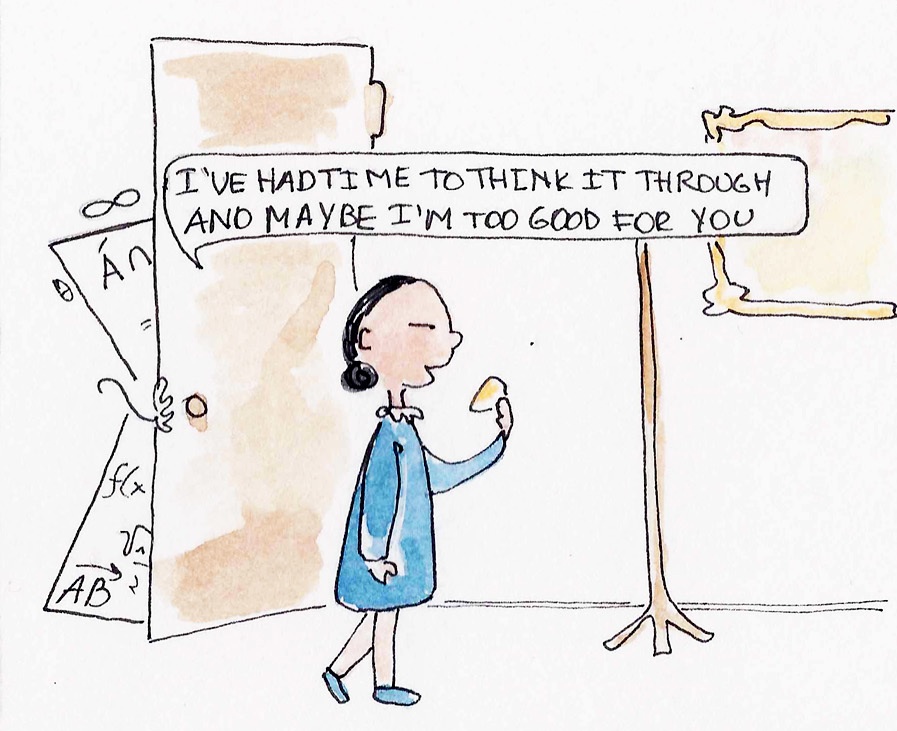 I'VE HAD TIME TO THINK IT THROUGH
AND MAYBE I'M TOO GOOD FOR YOU
∞
A∩
=
f(x
AB